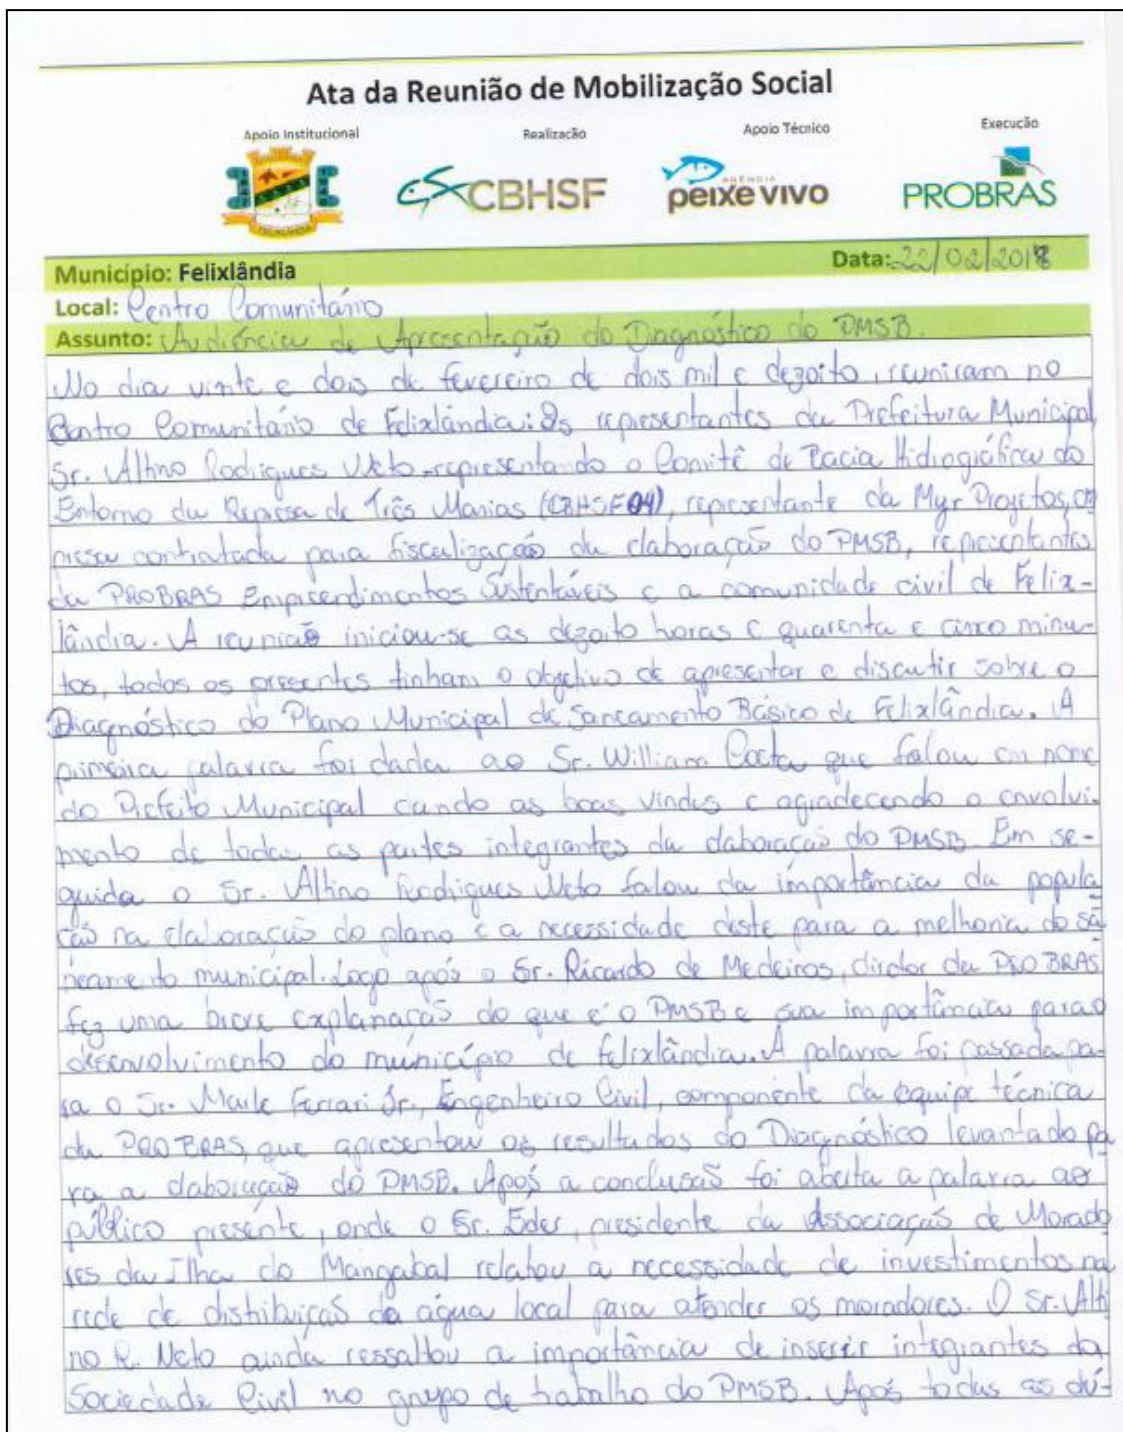 Ata da Reunião de Mobilização Social
Apoio Institucional Realização Apoio Técnico Execução
FELIXLÂNDIA CBHSF AGÊNCIA peixe vivo PROBRAS
Município: Felixlândia Data: 22/02/2018
Local: Centro Comunitário
Assunto: Audiência de Apresentação do Diagnóstico do PMSB.
No dia vinte e dois de fevereiro de dois mil e dezoito, reuniram no
Centro Comunitário de Felixlândia: Os representantes da Prefeitura Municipal
Sr. Altino Rodrigues Neto representando o Comitê de Bacia Hidrográfica do
Entorno da Represa de Três Marias (CBHSF04), representante da Myr Projetos, em
presa contratada para fiscalização da elaboração do PMSB, representantes
da PROBRAS Empreendimentos Sustentáveis e a comunidade civil de Felix-
lândia. A reunião iniciou-se as dezoito horas e quarenta e cinco minu-
tos, todos os presentes tinham o objetivo de apresentar e discutir sobre o
Diagnóstico do Plano Municipal de Saneamento Básico de Felixlândia. A
primeira palavra foi dada ao Sr. William que falou em nome
do Prefeito Municipal dando as boas vindas e agradecendo o envolvi-
mento de todas as partes integrantes da elaboração do PMSB. Em se-
guida o Sr. Altino Rodrigues Neto falou da importância da popula
ção na elaboração do plano e a necessidade deste para a melhoria do sa
neamento municipal. Logo após o Sr. Ricardo de Medeiros, diretor da PROBRAS
fez uma breve explanação do que é o PMSB e sua importância para o
desenvolvimento do município de Felixlândia. A palavra foi passada pa-
ra o Sr. Ferrari Jr., Engenheiro Civil, componente da equipe técnica
da PROBRAS, que apresentou os resultados do Diagnóstico levantado pa
ra a elaboração do PMSB. Após a conclusão foi aberta a palavra ao
público presente, onde o Sr. Eder, presidente da Associação de Morado
res da Ilha do Mangabal relatou a necessidade de investimentos na
rede de distribuição de água local para atender os moradores. O Sr. Alti
no R. Neto ainda ressaltou a importância de inserir integrantes da
Sociedade Civil no grupo de trabalho do PMSB. Após todas as dú-